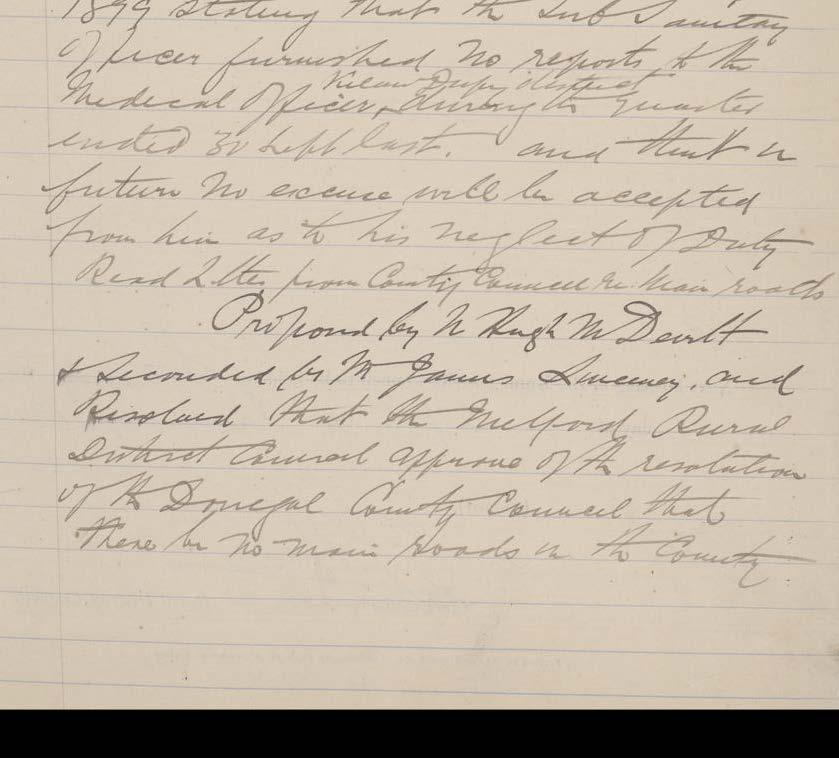 1899 stating that the Sub Sanitary
Officer furnished No reports to the
district
Medical Officer, during the quarter
ended 30 Sept last. and that in
future No excuse will be accepted
from him as to his neglect of Duty
Read Letter from County Council re. Main roads
Proposed by Mr Hugh McDevitt
& Seconded by Mr James Sweeney, and
Resolved that the Milford Rural
District Council approve of the resolution
of the Donegal County Council that
there be no main roads in the County